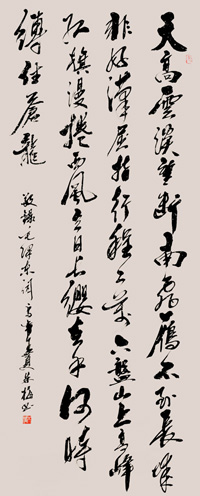 天高雲淡望斷南飛雁不到長城
非好漢屈指行程二萬六盤山上高峰
紅旗漫捲西風今日長纓在手何時
縛住蒼龍
敬錄毛澤東